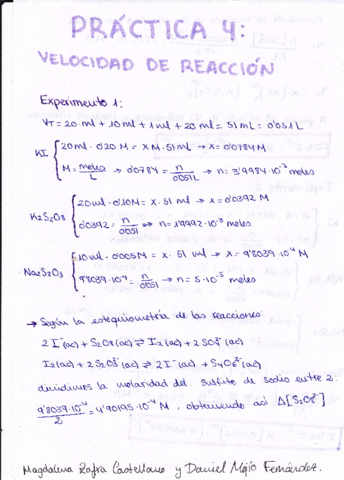 PRÁCTICA 4:
VELOCIDAD DE REACCIÓN
Experimento 1:
VT = 20 ml + 10 ml + 1 ml + 20 ml = 51 ml = 0'051 L
KI
20 ml · 0'20 M = x M · 51 ml → x = 0'0784 M
M = moles/L → 0'0784 = n/0'051L → n = 3'9984·10⁻³ moles
K2S2O8
20 ml · 0'10M = x · 51 ml → x = 0'0392 M
0'0392 = n/0'051 → n = 1'9992·10⁻³ moles
Na2S2O3
10 ml · 0'005M = x · 51 ml → x = 9'8039·10⁻⁴ M
9'8039·10⁻⁴ = n/0'051 → n = 5·10⁻⁵ moles
→ Según la estequiometría de las reacciones:
2 I⁻(ac) + S2O8²⁻(ac) ⇌ I2(ac) + 2 SO4²⁻(ac)
I2(ac) + 2 S2O3²⁻(ac) ⇌ 2 I⁻(ac) + S4O6²⁻(ac)
dividimos la molaridad del sulfito de sodio entre 2:
9'8039·10⁻⁴/2 = 4'90195·10⁻⁴ M, obteniendo así Δ[S2O8²⁻]
Magdalena Zafra Castellano y Daniel Mejío Fernández.